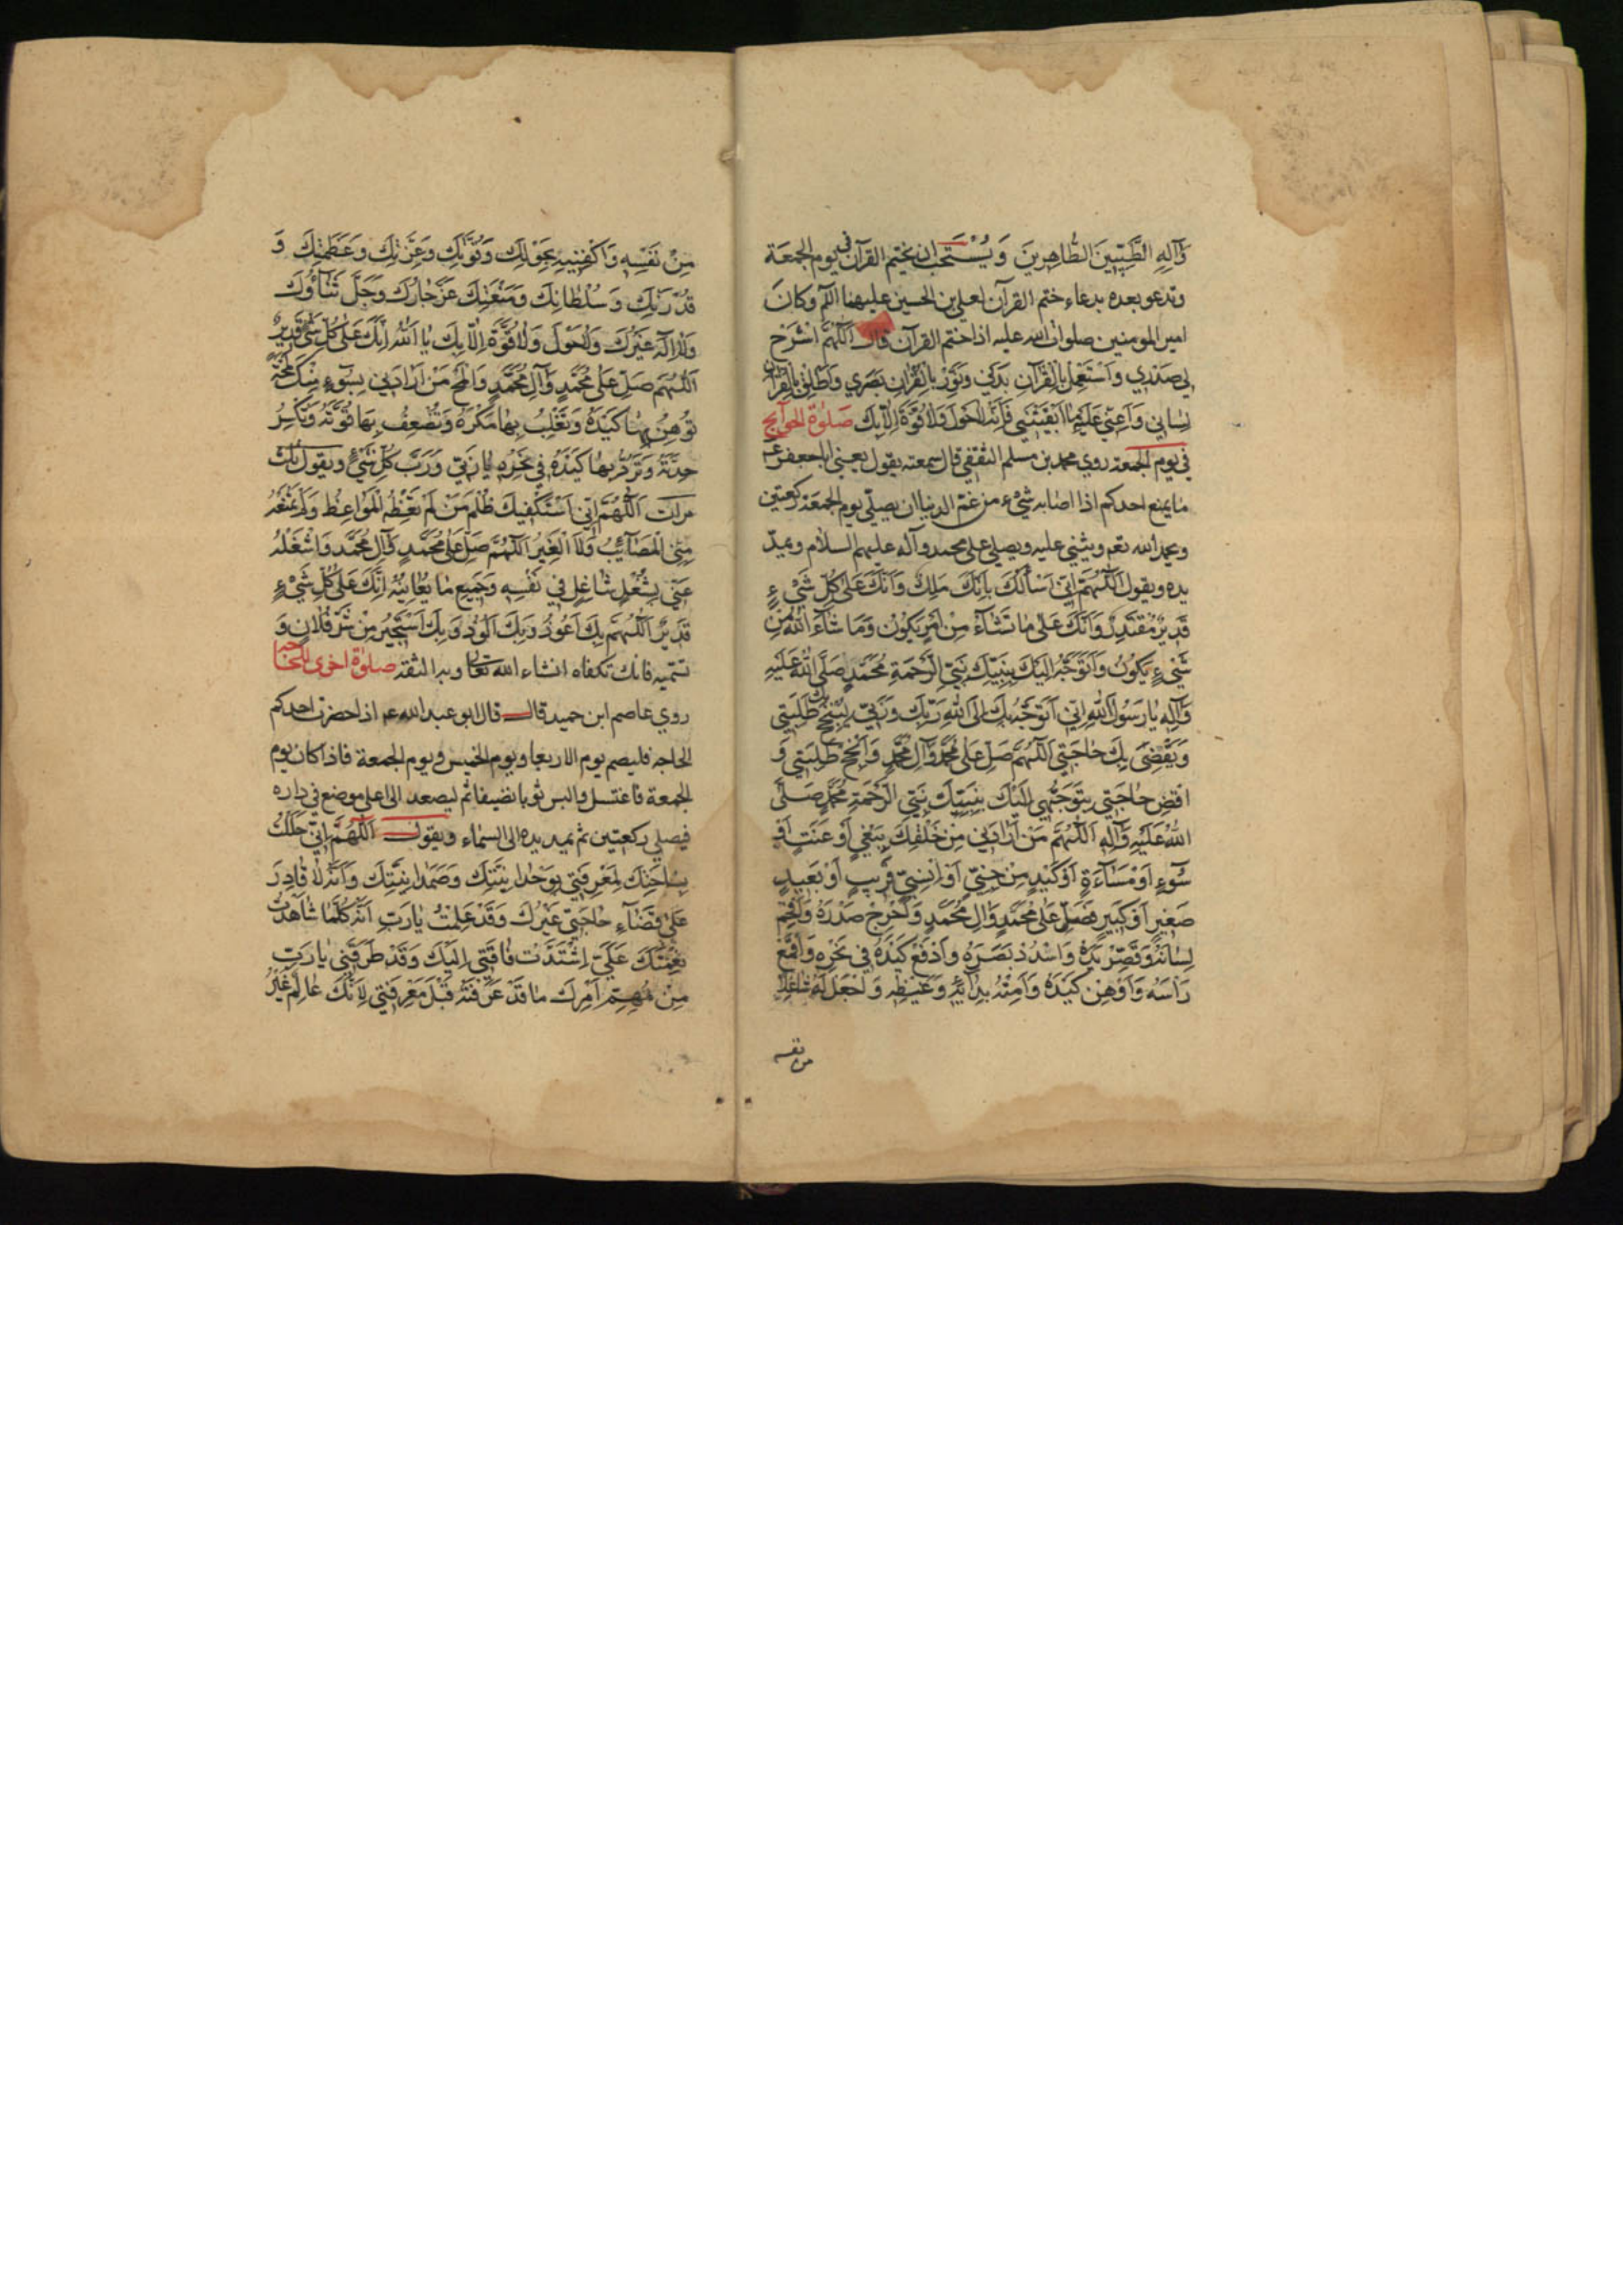 وَآلِهِ الطَّيِّبِينَ الطَّاهِرِينَ وَيُسْتَحَب ان يختم القرآن في يوم الجمعة
وتدعو بعده بدعاء ختم القرآن لعلي بن الحسين عليهما السلم وكان
امير المومنين صلوات الله عليه اذا ختم القرآن قال اَللّهُمَّ اشْرَحْ
لِي صَدْرِي وَاسْتَعْمِلْ بِالْقُرْآنِ بَدَنِي وَنَوِّرْ بِالْقُرْآنِ بَصَرِي وَاَطْلِقْ بِالْقُرْآنِ
لِسَانِي وَاَعِنِّي عَلَيْهِ مَا اَبْقَيْتَنِي فَاِنَّهُ لَاحَوْلَ وَلَاقُوَّةَ اِلَّا بِكَ صَلوٰة الحوآيج
في يوم الجمعة روي محمد بن مسلم الثقفي قال سمعته يقول يعني ابا جعفر ع
ما يمنع احدكم اذا اصابه شيء من غم الدنيا ان يصلي يوم الجمعة ركعتين
ويحمد الله تعم ويثني عليه ويصلي على محمد وآله عليهم السلام ويمدّ
يده ويقول اَللّهُمَّ اِنِّي اَسْأَلُكَ بِاَنَّكَ مَلِكٌ وَاَنَّكَ عَلىٰ كُلِّ شَيْءٍ
قَدِيرٌ مُقْتَدِرٌ وَاَنَّكَ عَلىٰ مَا تَشَآءُ مِنْ اَمْرٍ يَكُونُ وَمَا شَآءَ اللهُ مِنْ
شَيْءٍ يَكُونُ وَاَتَوَجَّهُ اِلَيْكَ بِنَبِيِّكَ نَبِيِّ الرَّحْمَةِ مُحَمَّدٍ صَلَّى اللهُ عَلَيْهِ
وَآلِهِ يَا رَسُولَ اللهِ اِنِّي اَتَوَجَّهُ بِكَ اِلَى اللهِ رَبِّكَ وَرَبِّي لِيُنْجِحَ بِكَ طَلِبَتِي
وَيَقْضِيَ بِكَ حَاجَتِي اَللّهُمَّ صَلِّ عَلىٰ مُحَمَّدٍ وَآلِ مُحَمَّدٍ وَاَنْجِحْ طَلِبَتِي وَ
اقْضِ حَاجَتِي بِتَوَجُّهِي اِلَيْكَ بِنَبِيِّكَ نَبِيِّ الرَّحْمَةِ مُحَمَّدٍ صَلَّى
اللهُ عَلَيْهِ وَآلِهِ اَللّهُمَّ مَنْ اَرَادَنِي مِنْ خَلْقِكَ بِبَغْيٍ اَوْ عَنَتٍ اَوْ
سُوٓءٍ اَوْ مَسَآءَةٍ اَوْ كَيْدٍ مِنْ جِنِّيٍّ اَوْ اِنْسِيٍّ قَرِيبٍ اَوْ بَعِيدٍ
صَغِيرٍ اَوْ كَبِيرٍ فَصَلِّ عَلىٰ مُحَمَّدٍ وَالِ مُحَمَّدٍ وَاَحْرِجْ صَدْرَهُ وَاَفْحِمْ
لِسَانَهُ وَقَصِّرْ يَدَهُ وَاسْدُدْ بَصَرَهُ وَادْفَعْ كَيْدَهُ فِي نَحْرِهِ وَاقْمَعْ
رَاْسَهُ وَاَوْهِنْ كَيْدَهُ وَاَمِتْهُ بِدَائِهِ وَغَيْظِهِ وَاجْعَلْ لَهُ شَاغِلًا
من نفسه
مِنْ نَفْسِهِ وَاكْفِنِيهِ بِحَوْلِكَ وَقُوَّتِكَ وَعِزَّتِكَ وَعَظَمَتِكَ وَ
قُدْرَتِكَ وَسُلْطَانِكَ وَمَنْعَتِكَ عَزَّ جَارُكَ وَجَلَّ ثَنَاؤُكَ
وَلَا اِلٰهَ غَيْرُكَ وَلَاحَوْلَ وَلَاقُوَّةَ اِلَّا بِكَ يَا اَللهُ اِنَّكَ عَلىٰ كُلِّ شَيْءٍ قَدِيرٌ
اَللّهُمَّ صَلِّ عَلىٰ مُحَمَّدٍ وَآلِ مُحَمَّدٍ وَالْمَحْ مَنْ اَرَادَنِي بِسُوٓءٍ مِنْكَ لَمْحَةً
تُوهِنُ بِهَا كَيْدَهُ وَتَغْلِبُ بِهَا مَكْرَهُ وَتُضْعِفُ بِهَا قُوَّتَهُ وَتَكْسِرُ
حِدَّتَهُ وَتَرُدُّ بِهَا كَيْدَهُ فِي نَحْرِهِ يَا رَبِّي وَرَبَّ كُلِّ شَيْءٍ ويقول ثلث
مرات اَللّهُمَّ اِنِّي اَسْتَكْفِيكَ ظُلْمَ مَنْ لَمْ تَعِظْهُ الْمَوَاعِظُ وَلَمْ تَمْنَعْهُ
مِنِّي الْمَصَآئِبُ وَلَا الْغِيَرُ اَللّهُمَّ صَلِّ عَلىٰ مُحَمَّدٍ وَآلِ مُحَمَّدٍ وَاشْغَلْهُ
عَنِّي بِشُغْلٍ شَاغِلٍ فِي نَفْسِهِ وَجَمِيعِ مَا يُعَانِيهِ اِنَّكَ عَلىٰ كُلِّ شَيْءٍ
قَدِيرٌ اَللّهُمَّ بِكَ اَعُوذُ وَبِكَ اَلُوذُ وَبِكَ اَسْتَجِيرُ مِنْ شَرِّ فُلَانٍ وَ
تسميه فانك تكفاه انشاء الله تعا وبه الثقة صلوٰة اخرى للحاجة
روي عاصم ابن حميد قال قال ابو عبد الله ع اذا حضرت احدكم
الحاجه فليصم يوم الاربعا ويوم الخميس ويوم الجمعة فاذا كان يوم
الجمعة فاغتسل والبس ثوبا نضيفا ثم ليصعد الى اعلى موضع في داره
فيصلي ركعتين ثم يمد يده الى السماء ويقول اَللّهُمَّ اِنِّي حَلَلْتُ
بِسَاحَتِكَ لِمَعْرِفَتِي بِوَحْدَانِيَّتِكَ وَصَمَدَانِيَّتِكَ وَاَنَّهُ لَا قَادِرَ
عَلىٰ قَضَآءِ حَاجَتِي غَيْرُكَ وَقَدْ عَلِمْتُ يَارَبِّ اَنَّهُ كُلَّمَا شَاهَدْتُ
نِعْمَتَكَ عَلَيَّ اِشْتَدَّتْ فَاقَتِي اِلَيْكَ وَقَدْ طَرَقَنِي يَا رَبِّ
مِنْ مُهِمِّ اَمْرِكَ مَا قَدْ عَرَفْتَهُ قَبْلَ مَعْرِفَتِي لِاَنَّكَ عَالِمٌ غَيْرُ